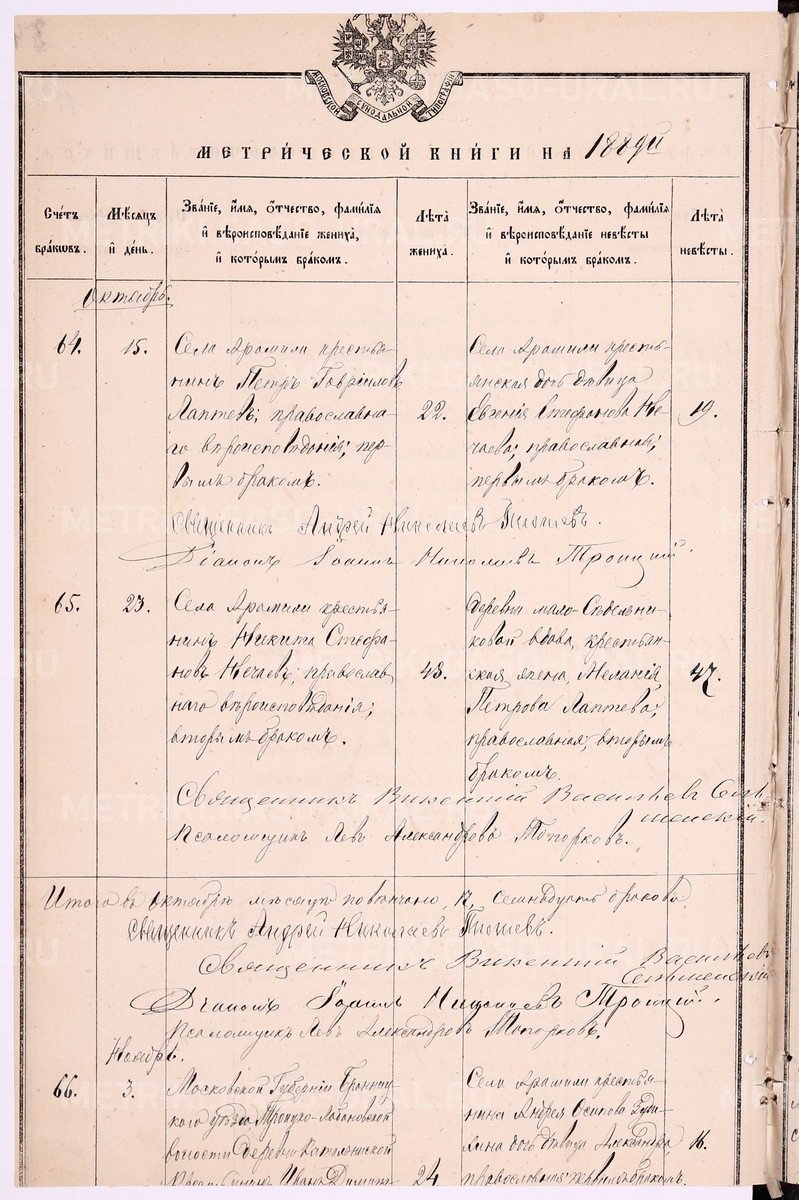 МОСКОВСКОЙ СѴНОДАЛЬНОЙ ТИПОГРАФІИ
МЕТРИ́ЧЕСКОЙ КНИ́ГИ НА 1889й
Сче́тъ бра́кѡвъ.
Мѣ́сяцъ и҆ де́нь.
Зва́нїе, и҆́мѧ, ѻ҆́тчество, фами́лїѧ и҆ вѣроисповѣ́данїе жениха̀, и҆ кото́рымъ бра́комъ.
Лѣ́та жениха̀.
Зва́нїе, и҆́мѧ, ѻ҆́тчество, фами́лїѧ и҆ вѣроисповѣ́данїе невѣ́сты и҆ кото́рымъ бра́комъ.
Лѣ́та невѣ́сты.
Октябрь.
64.
15.
Села Арамили крестья-
нинъ Петръ Гавріиловъ
Лаптевъ; православна-
го вѣроисповѣданія; пер-
вымъ бракомъ.
22.
Села Арамили кресть-
янская дочь дѣвица
Евгенія Стефанова Не-
чаева; православная;
первымъ бракомъ.
19.
Священникъ Андрей Николаевъ
Діаконъ Іоаннъ Николаевъ Троицкій.
65.
23.
Села Арамили крестья-
нинъ Никита Стефа-
новъ Нечаевъ; православ-
наго вѣроисповѣданія;
вторымъ бракомъ.
48.
Деревни мало-Седельни-
ковой вдова, крестьян-
ская жена, Меланія
Петрова Лаптева;
православная; вторымъ
бракомъ.
47.
Священникъ Викентій Васильевъ
Псаломщикъ Левъ Александровъ Топорковъ.
Итого въ октябрѣ мѣсяцѣ повѣнчано 17, семнадцать браковъ.
Священникъ Андрей Николаевъ
Священникъ Викентій Васильевъ
Діаконъ Іоаннъ Николаевъ Троицкій.
Псаломщикъ Левъ Александровъ Топорковъ.
Ноябрь.
66.
3.
Московской Губерніи Бронниц-
кого уѣзда Троицко-Лобановской
волости деревни
Иванъ Димит-
24.
Села Арамили крестья-
нина Андрея Осипова
дочь дѣвица Александра,
православная; первымъ бракомъ.
16.